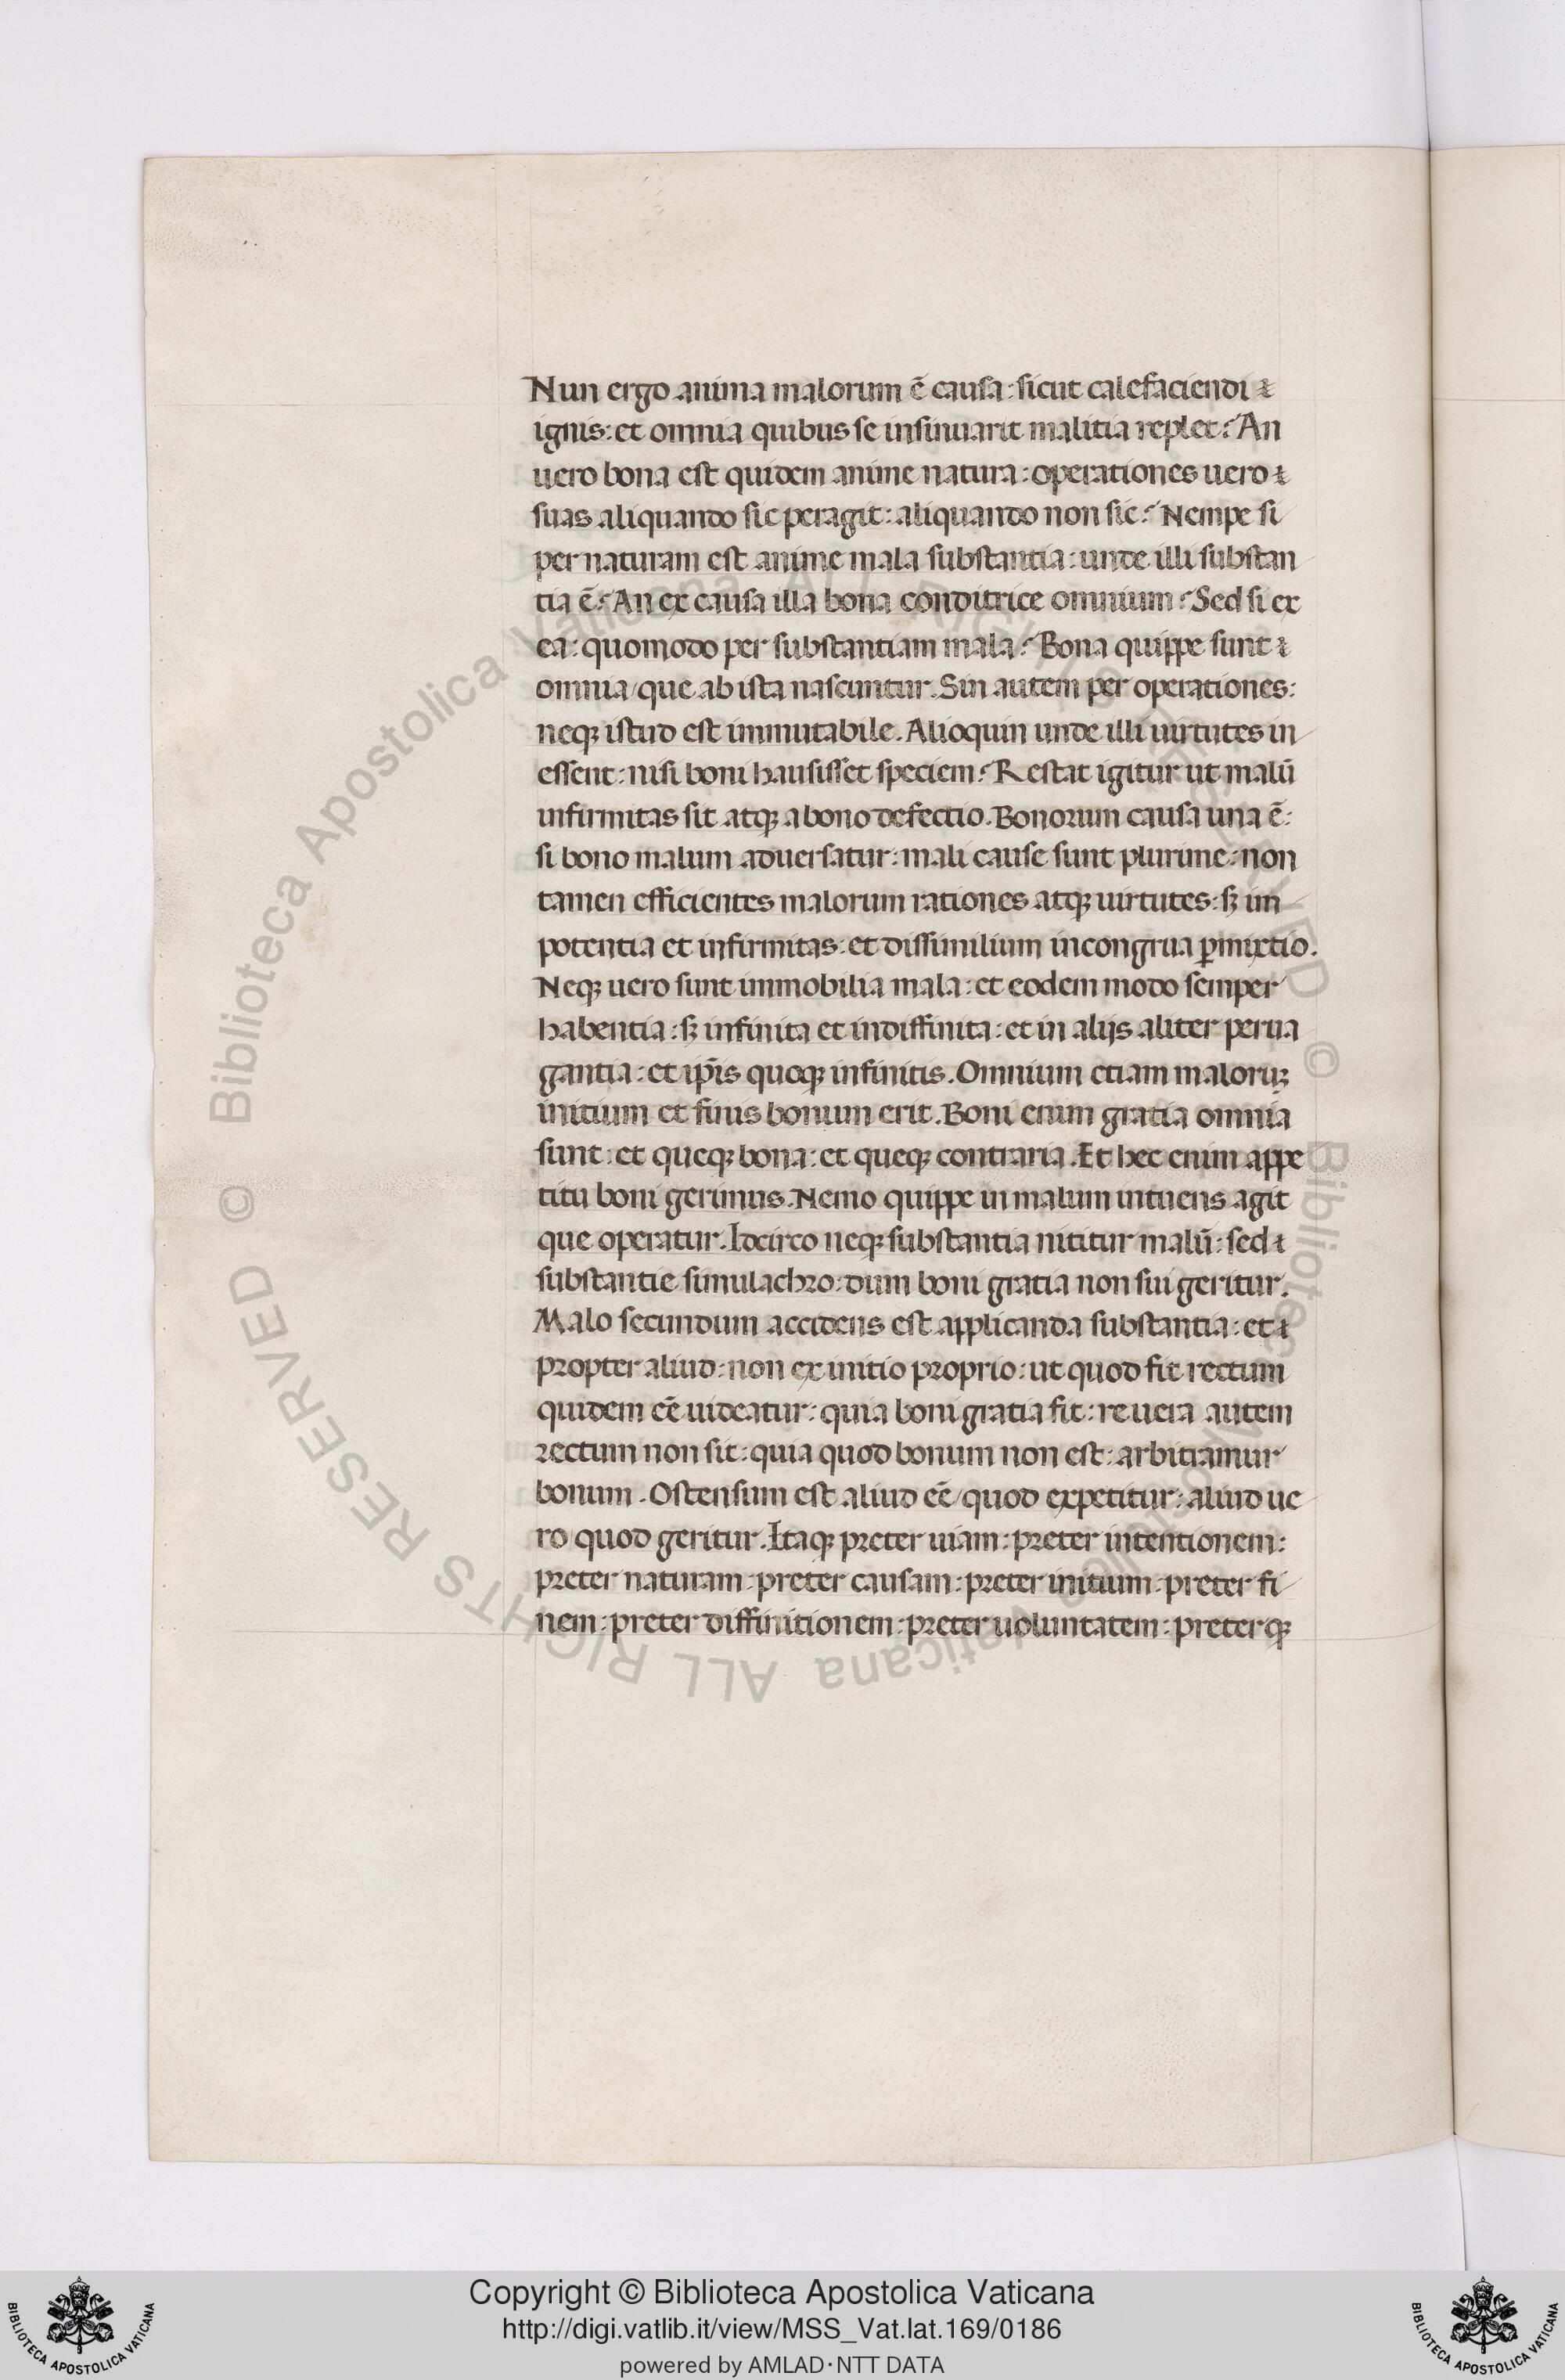 Nun ergo anima malorum ē causa: sicut calefaciendi
ignis: et omnia quibus se insinuarit malitia replet? An
uero bona est quidem anime natura: operationes uero
suas aliquando sic peragit: aliquando non sic? Nempe si
per naturam est anime mala substantia: unde illi substan
tia ē? An ex causa illa bona conditrice omnium? Sed si ex
ea: quomodo per substantiam mala? Bona quippe sunt
omnia/que ab ista nascuntur. Sin autem per operationes:
neqꝫ istud est immutabile. Alioquin unde illi uirtutes in
essent: nisi boni hausisset speciem? Restat igitur ut malū
infirmitas sit atqꝫ a bono defectio. Bonorum causa una ē:
si bono malum aduersatur: mali cause sunt plurime: non
tamen efficientes malorum rationes atqꝫ uirtutes: sꝫ im
potentia et infirmitas: et dissimilium incongrua ꝑmixtio.
Neqꝫ uero sunt immobilia mala: et eodem modo semper
habentia: sꝫ infinita et indiffinita: et in alijs aliter perua
gantia: et ip̄is quoqꝫ infinitis. Omnium etiam maloruꝫ
initium et finis bonum erit. Boni enim gratia omnia
sunt: et queqꝫ bona: et queqꝫ contraria. Et hec enim appe
titu boni gerimus. Nemo quippe in malum intuens agit
que operatur. Idcirco neqꝫ substantia nititur malū: sed
substantie simulachro: dum boni gratia non sui geritur.
Malo secundum accidens est applicanda substantia: et
propter aliud: non ex initio proprio: ut quod fit rectum
quidem eē uideatur: quia boni gratia fit: re uera autem
rectum non sit: quia quod bonum non est: arbitramur
bonum. Ostensum est aliud eē/quod expetitur: aliud ue
ro quod geritur. Itaqꝫ preter uiam: preter intentionem:
preter naturam: preter causam: preter initium: preter fi
nem: preter diffinitionem: preter uoluntatem: preterqꝫ
© Biblioteca Apostolica Vaticana ALL RIGHTS RESERVED © Biblioteca Apostolica Vaticana ALL RIGHTS RESERVED
Copyright © Biblioteca Apostolica Vaticana
http://digi.vatlib.it/view/MSS_Vat.lat.169/0186
powered by AMLAD·NTT DATA
BIBLIOTECA APOSTOLICA VATICANA
BIBLIOTECA APOSTOLICA VATICANA